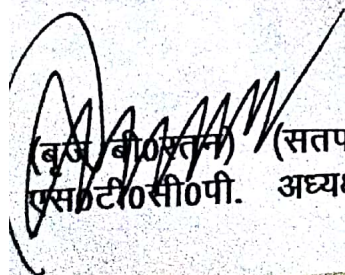 (बृज बी०रतन) (सतप
एस०टी०सी०पी. अध्यक्ष